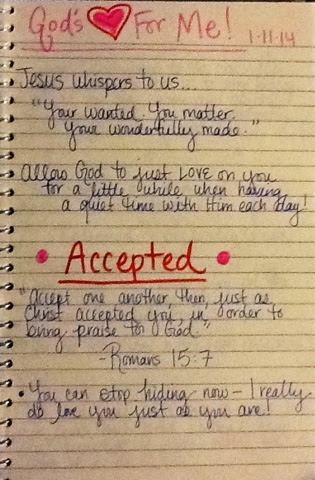 God's For Me! 1-11-14
Jesus whispers to us...
"Your wanted. You matter.
Your wonderfully made."
Allow God to just LOVE on you
for a little while when having
a quiet time with Him each day!
• Accepted •
"Accept one another, then, just as
Christ accepted you, in order to
bring praise to God."
-Romans 15:7
• You can stop hiding now - I really
do love you just as you are!